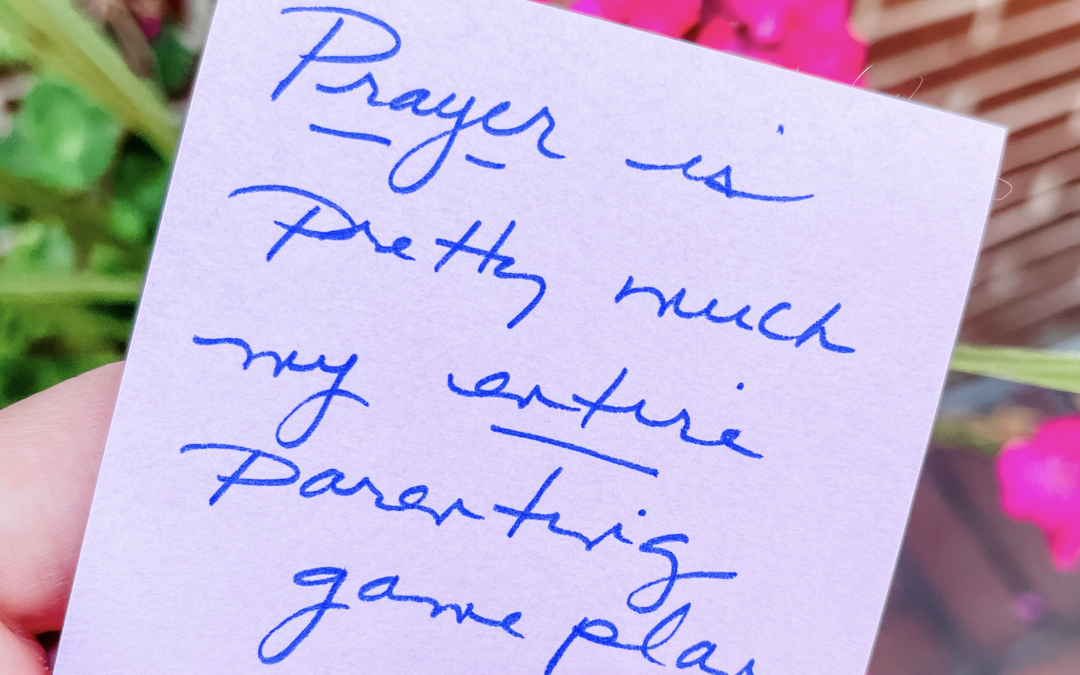 Prayer is
Pretty much
my entire
Parenting
game plan